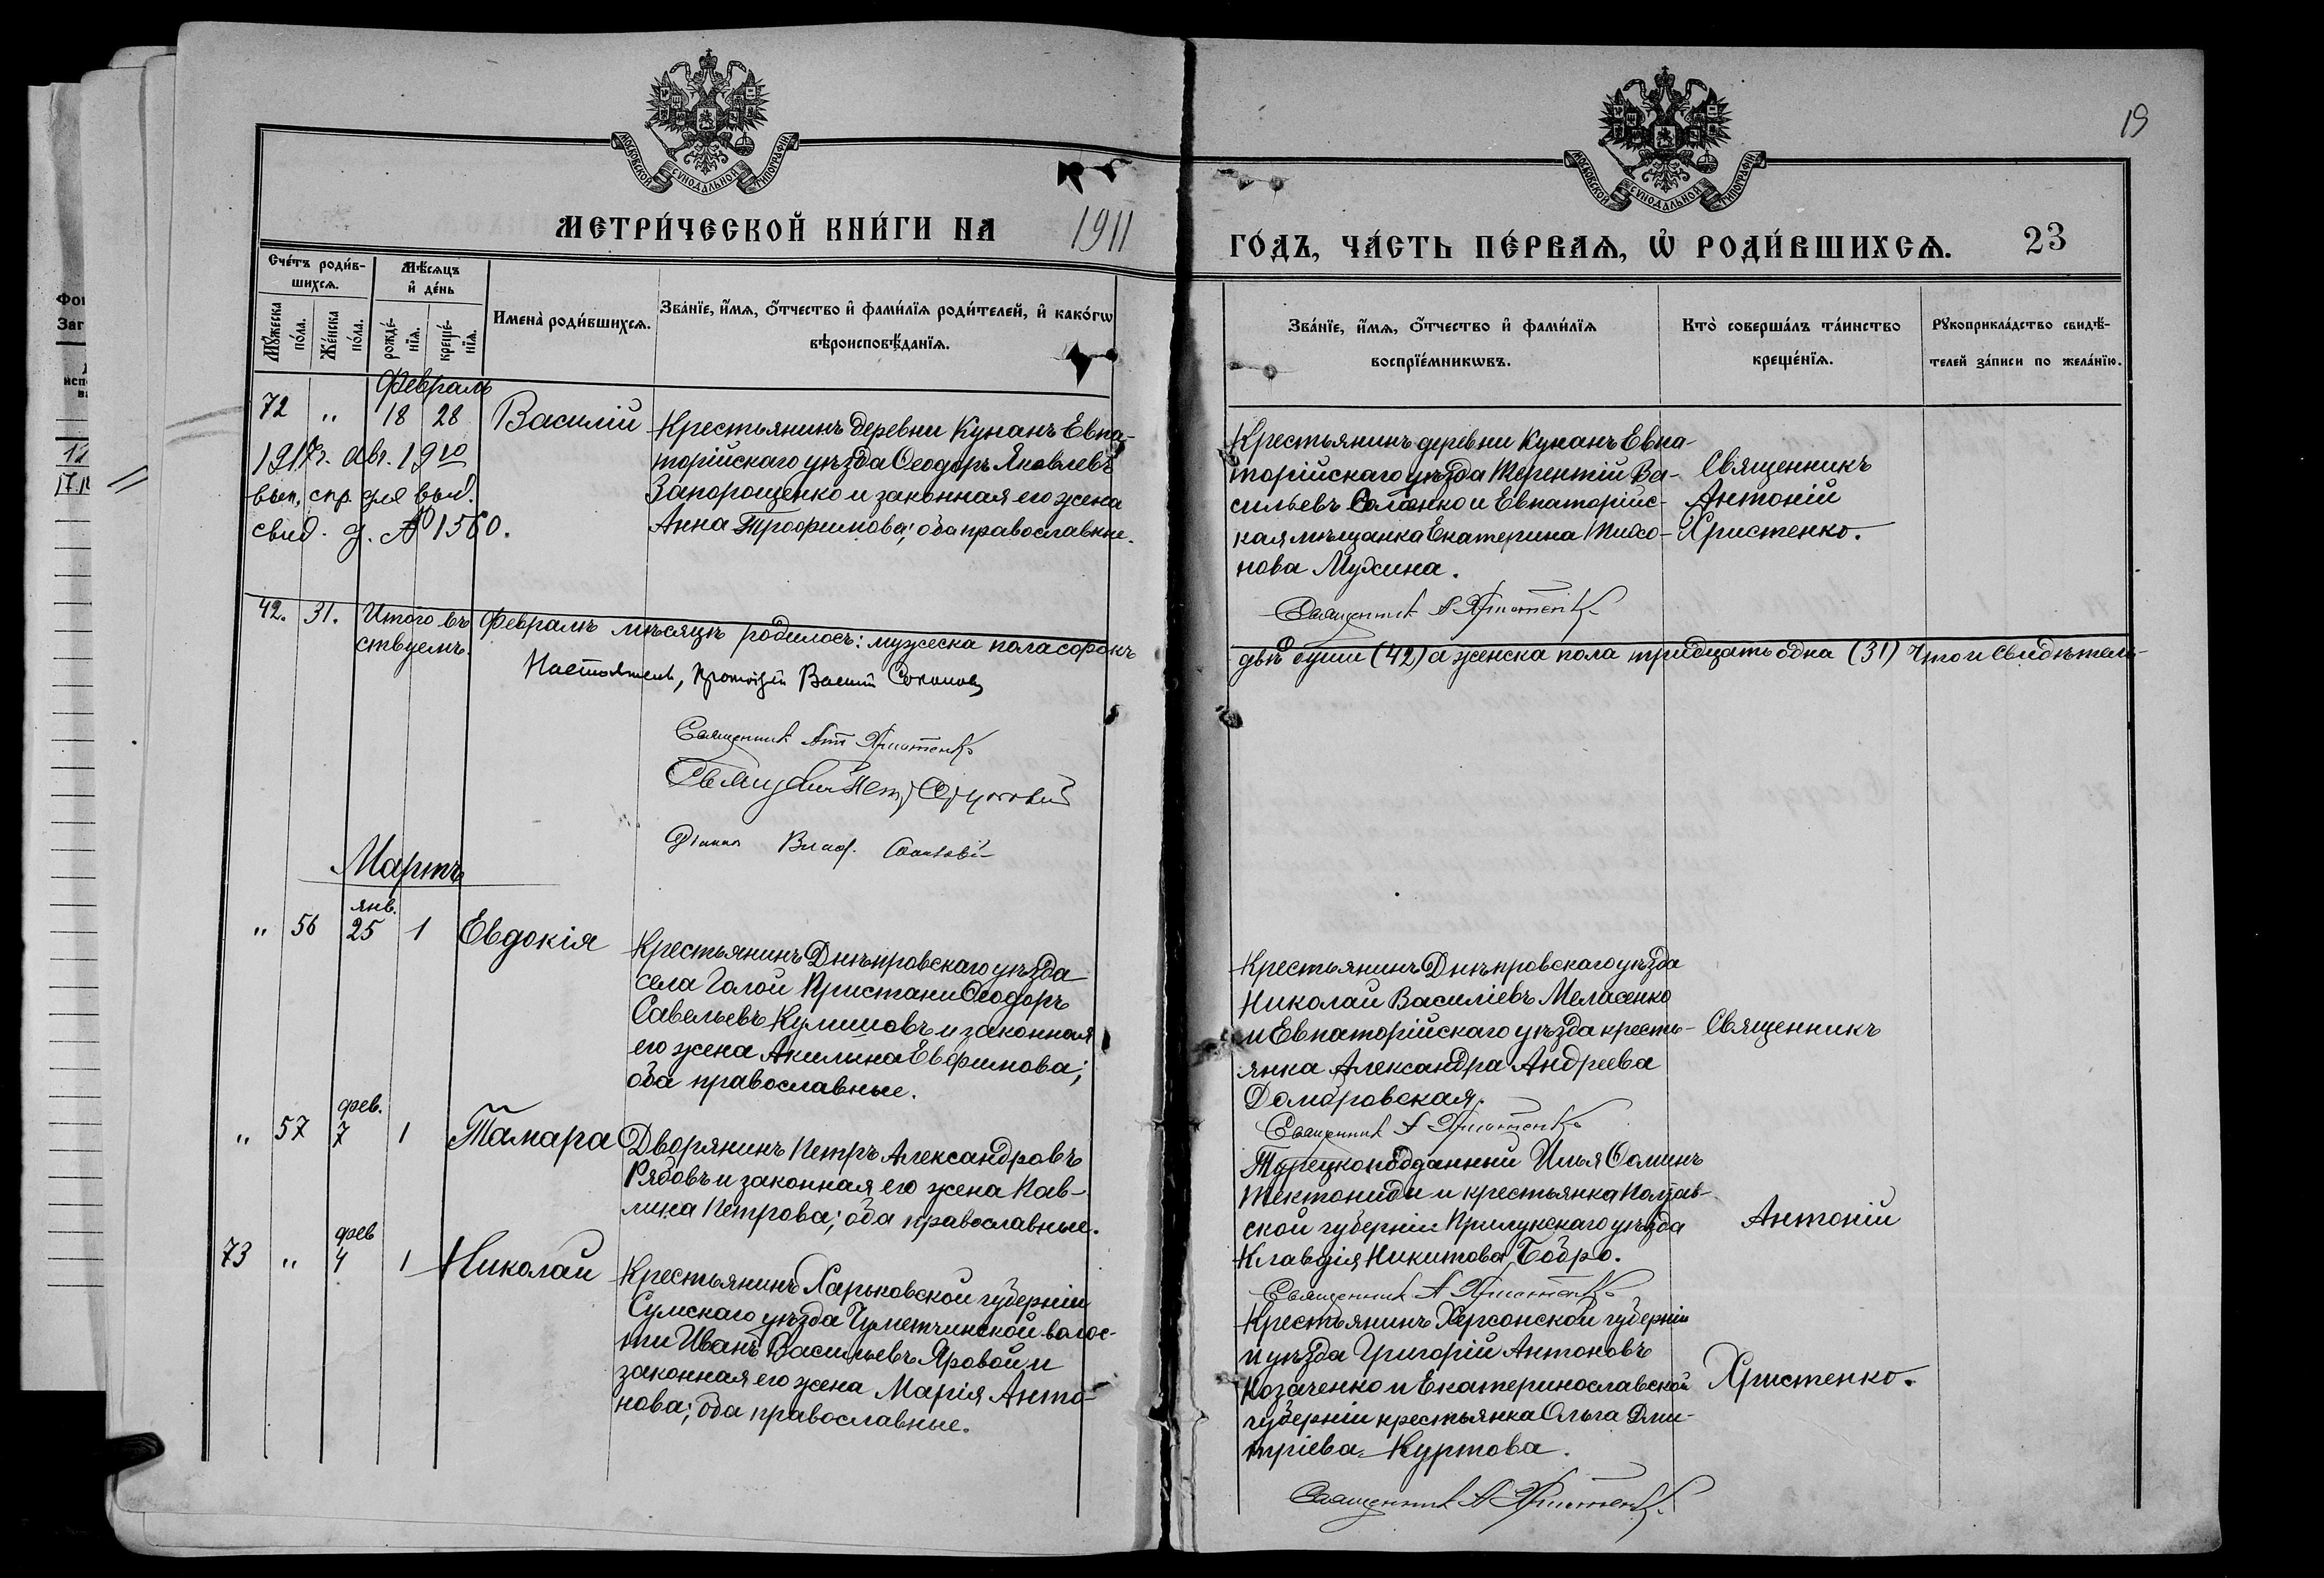 19
МОСКОВСКОЙ СѴНОДАЛЬНОЙ ТИПОГРАФІИ
МОСКОВСКОЙ СѴНОДАЛЬНОЙ ТИПОГРАФІИ
МЕТРИ́ЧЕСКОЙ КНИ́ГИ НА 1911
ГО́ДЪ, ЧА́СТЬ ПЕ́РВАѦ, Ѡ҆ РОДИ́ВШИХСѦ. 23
Сче́тъ роди́в-
шихсѧ.
Мѣ́сѧцъ
и҆ де́нь
Мꙋ́жеска
по́ла.
Же́нска
по́ла.
рожде́-
нїѧ.
креще́-
нїѧ.
Имена̀ роди́вшихсѧ.
Зва́нїе, и҆́мѧ, ѻ҆́тчество и҆ фами́лїѧ роди́телей, и҆ како́гѡ
вѣроисповѣ́данїѧ.
Зва́нїе, и҆́мѧ, ѻ҆́тчество и҆ фами́лїѧ
воспрїе́мникѡвъ.
Кто̀ соверша́лъ та́инство
креще́нїѧ.
Рꙋкоприкла́дство свидѣ́-
телей за́писи по жела́нїю.
Февраль
72 " 18 28 Василій
1917г. авг. 19 го
вып. спр. для вып.
свид. д. № 1560.
Крестьянинъ деревни Кунанъ Евпа-
торійскаго уѣзда Ѳеодоръ Яковлевъ
Запорощенко и законная его жена
Анна Трофимова; оба православные.
Крестьянинъ деревни Кунанъ Евпа-
торійскаго уѣзда Терентій Ва-
сильевъ и Евпаторійс-
кая мѣщанка Екатерина Тихо-
нова Мухина.
Священникъ
Антоній
Христенко.
Священник А Христенко
42. 31. Итого въ Февралѣ мѣсяцѣ родилось: мужеска пола сорокъ
двѣ души (42) а женска пола тридцать одна (31) Что и свидѣтель-
ствуемъ.
Настоятель, Протоіерей Василій
Священник Ант Христенко
Священник Петр
Діакон Влад.
Мартъ
" 56 янв. 25 1 Евдокія
Крестьянинъ Днѣпровскаго уѣзда
села Голой Пристани Ѳеодоръ
Савельевъ Кулишовъ и законная
его жена Акилина Евфимова;
оба православные.
Крестьянинъ Днѣпровскаго уѣзда
Николай Василіевъ Меласенко
и Евпаторійскаго уѣзда кресть-
янка Александра Андреева
Домбровская.
Священникъ
Священник А Христенко
" 57 фев. 7 1 Тамара
Дворянинъ Петръ Александровъ
Рябовъ и законная его жена Пав-
лина Петрова; оба православные.
Турецкоподданный Илья Ѳоминъ
Тектониди и крестьянка Полтав-
ской губерніи Прилукскаго уѣзда
Клавдія Никитова Бобро.
Антоній
Священник А Христенко
73 " фев 4 1 Николай
Крестьянинъ Харьковской губерніи
Сумскаго уѣзда волос-
ти Иванъ Васильевъ Яровой и
законная его жена Марія Анто-
нова; оба православные.
Крестьянинъ Херсонской губерніи
и уѣзда Григорій Антоновъ
Козаченко и Екатеринославской
губерніи крестьянка Ольга Дми-
тріева Куртова.
Христенко.
Священник А Христенко